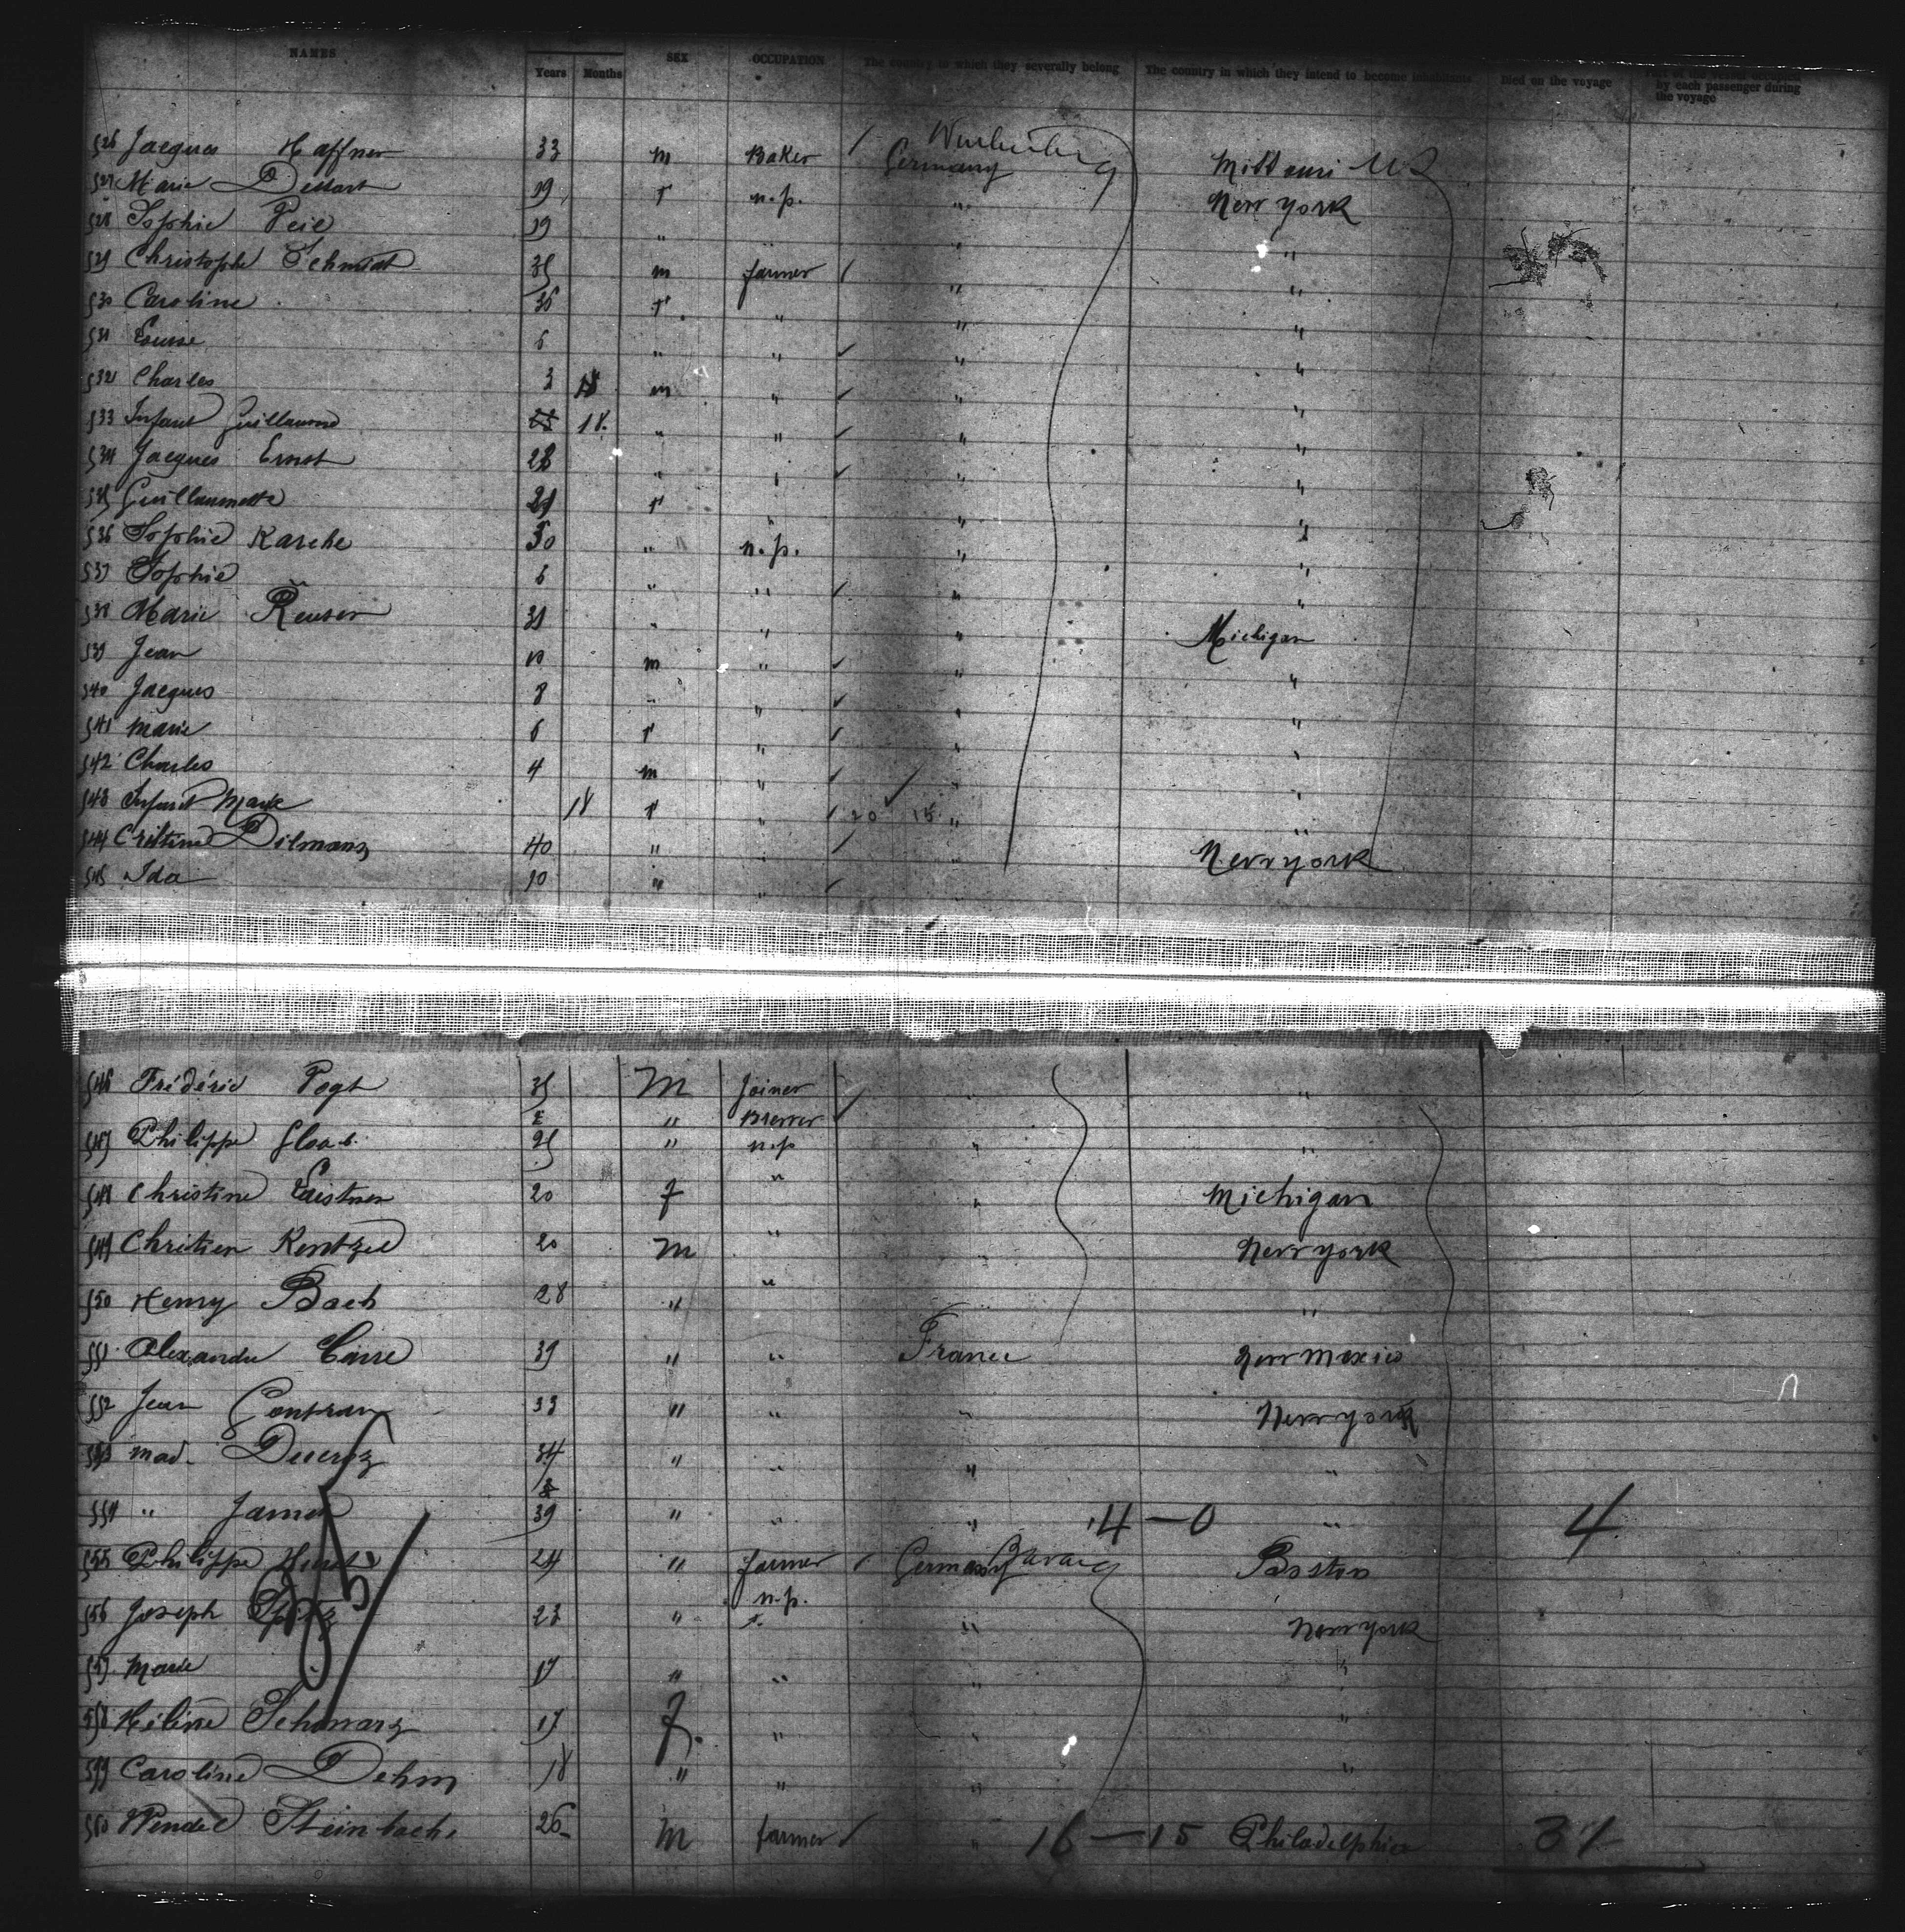 NAMES Years Months SEX OCCUPATION The country to which they severally belong The country in which they intend to become inhabitants Died on the voyage Part of the vessel occupied by each passenger during the voyage
526 Jacques Haffner 33 m Baker / Germany Missouri U S
527 Marie 19 f n.p. " New york
528 Sophie Peil 19 " " " "
529 Christophe Schmidt 35 m farmer / " "
530 Caroline 35 f " " "
531 Louise 6 " " " "
532 Charles 3 m " " "
533 Infant Guillaume 18 " " " "
534 Jacques Ernst 28 " " " "
535 Guillaumette 21 f " " "
536 Sophie Karche 30 " n.p. " "
537 Sophie 6 " " " "
538 Marie Reuser 31 " " " Michigan
539 Jean 10 m " " "
540 Jacques 8 " " " "
541 Marie 6 f " " "
542 Charles 4 m " " "
543 Infant Marie 18 f " 20 15 " "
544 Cristine Dilmann 40 " " New york
545 Ida 10 " " "
546 Frédéric Vogt 35 M Joiner " "
" Brewer
547 Philippe Gloab 25 " n.p " "
548 Christine Leistner 20 f " " Michigan
549 Chretien Kentzel 20 M " " New york
550 Henry Bach 28 " " "
551 Alexandre Carre 39 " " France New Mexico
552 Jean Gontran 33 " " " New york
553 Mad. Ducroz 34 " " " "
554 " James 39 " " " 4 — 0 " 4
555 Philippe 24 " farmer / Germany Bavaria Boston
556 Joseph 23 " n.p. " New york
557 Marie 17 " " " "
558 Hélène Schwarz 17 f. " " "
559 Caroline Dehm 18 " " " "
560 Wendel Steinbach 26 M farmer / " 16 — 15 Philadelphia 31